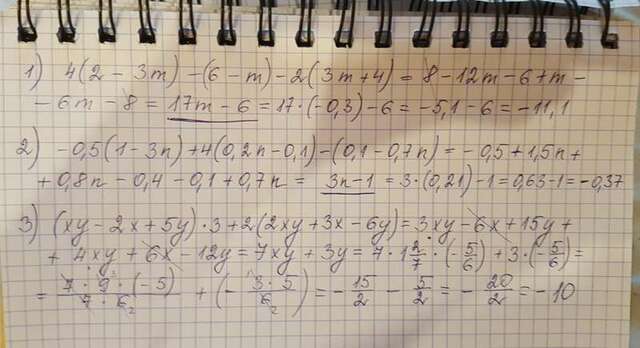 1) 4(2 - 3m) - (6 - m) - 2(3m + 4) = 8 - 12m - 6 + m -
- 6m - 8 = 17m - 6 = 17·(-0,3) - 6 = -5,1 - 6 = -11,1
2) -0,5(1 - 3n) + 4(0,2n - 0,1) - (0,1 - 0,7n) = -0,5 + 1,5n +
+ 0,8n - 0,4 - 0,1 + 0,7n = 3n - 1 = 3·(0,21) - 1 = 0,63 - 1 = -0,37
3) (xy - 2x + 5y)·3 + 2(2xy + 3x - 6y) = 3xy - 6x + 15y +
+ 4xy + 6x - 12y = 7xy + 3y = 7·1 2/7·(-5/6) + 3·(-5/6) =
= 7·9·(-5)/7·6 2 + (- 3·5/6 2) = - 15/2 - 5/2 = - 20/2 = -10